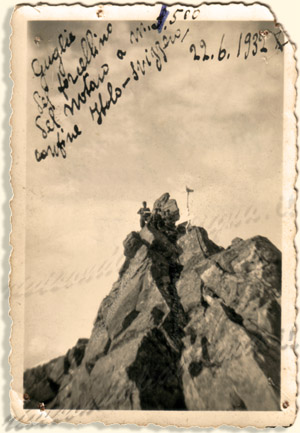 Guglie
del forcellino
del Notaro a m. 2.580
confine Italo-svizzero,
22.6.193